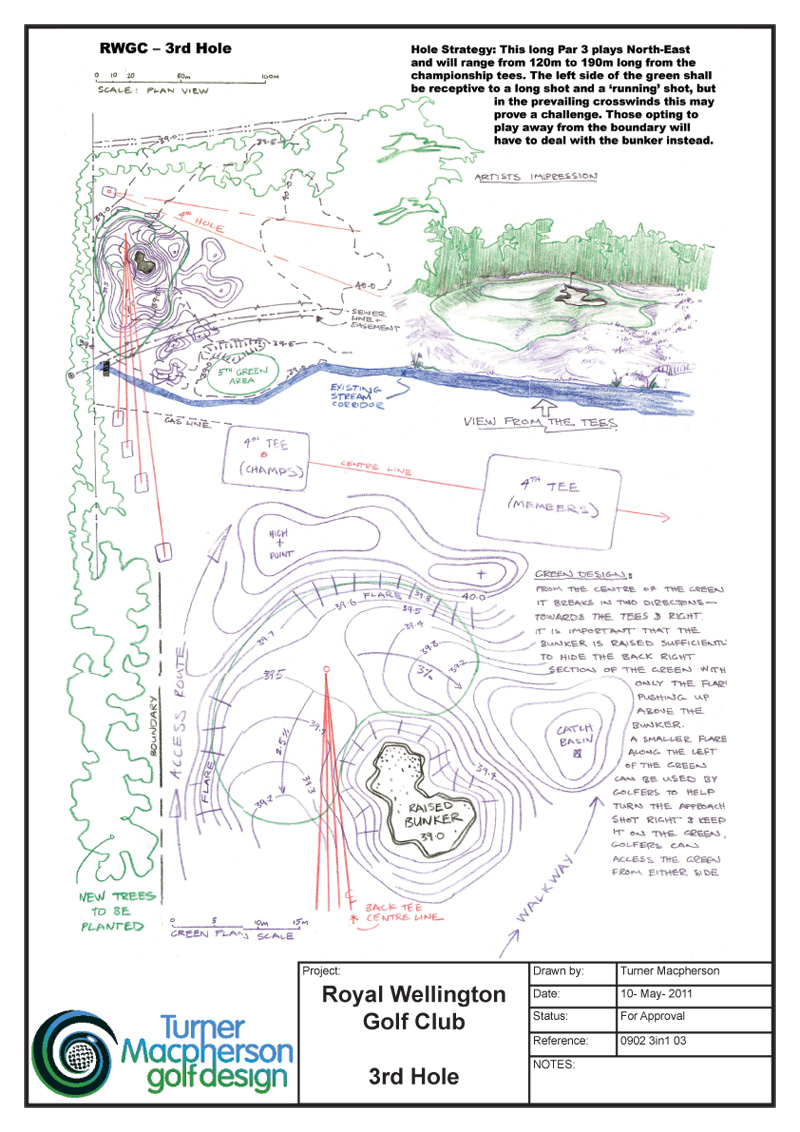 RWGC – 3rd Hole
0 10 20 50m 100m
SCALE: PLAN VIEW
Hole Strategy: This long Par 3 plays North-East
and will range from 120m to 190m long from the
championship tees. The left side of the green shall
be receptive to a long shot and a ‘running’ shot, but
in the prevailing crosswinds this may
prove a challenge. Those opting to
play away from the boundary will
have to deal with the bunker instead.
ARTISTS IMPRESSION
39.0
39.5
39.0
40.0
4TH HOLE
40.0
SEWER
LINE +
EASEMENT
39.0
39.0
39.5
5TH GREEN
AREA
39.0
EXISTING
STREAM
CORRIDOR
VIEW FROM THE TEES
GAS LINE
4TH TEE
(CHAMPS)
CENTRE LINE
4TH TEE
(MEMBERS)
HIGH
+
POINT
+
FLARE
39.8
40.0
39.7
39.6
39.5
39.4
39.3
39.2
3%
39.5
39.4
2.5%
39.3
39.2
FLARE
ACCESS ROUTE
BOUNDARY
39.4
RAISED
BUNKER
39.0
CATCH
BASIN
GREEN DESIGN:
FROM THE CENTRE OF THE GREEN
IT BREAKS IN TWO DIRECTIONS –
TOWARDS THE TEES & RIGHT.
IT IS IMPORTANT THAT THE
BUNKER IS RAISED SUFFICIENTL
TO HIDE THE BACK RIGHT
SECTION OF THE GREEN WITH
ONLY THE FLAR
PUSHING UP
ABOVE THE
BUNKER.
A SMALLER FLARE
ALONG THE LEFT
OF THE GREEN
CAN BE USED BY
GOLFERS TO HELP
TURN THE APPROACH
SHOT RIGHT & KEEP
IT ON THE GREEN.
GOLFERS CAN
ACCESS THE GREEN
FROM EITHER SIDE
WALKWAY
NEW TREES
TO BE
PLANTED
BACK TEE
CENTRE LINE
0 5 10m 15m
GREEN PLAN SCALE
Turner
Macpherson
golfdesign
Project:
Royal Wellington
Golf Club
3rd Hole
Drawn by: Turner Macpherson
Date: 10- May- 2011
Status: For Approval
Reference: 0902 3in1 03
NOTES: